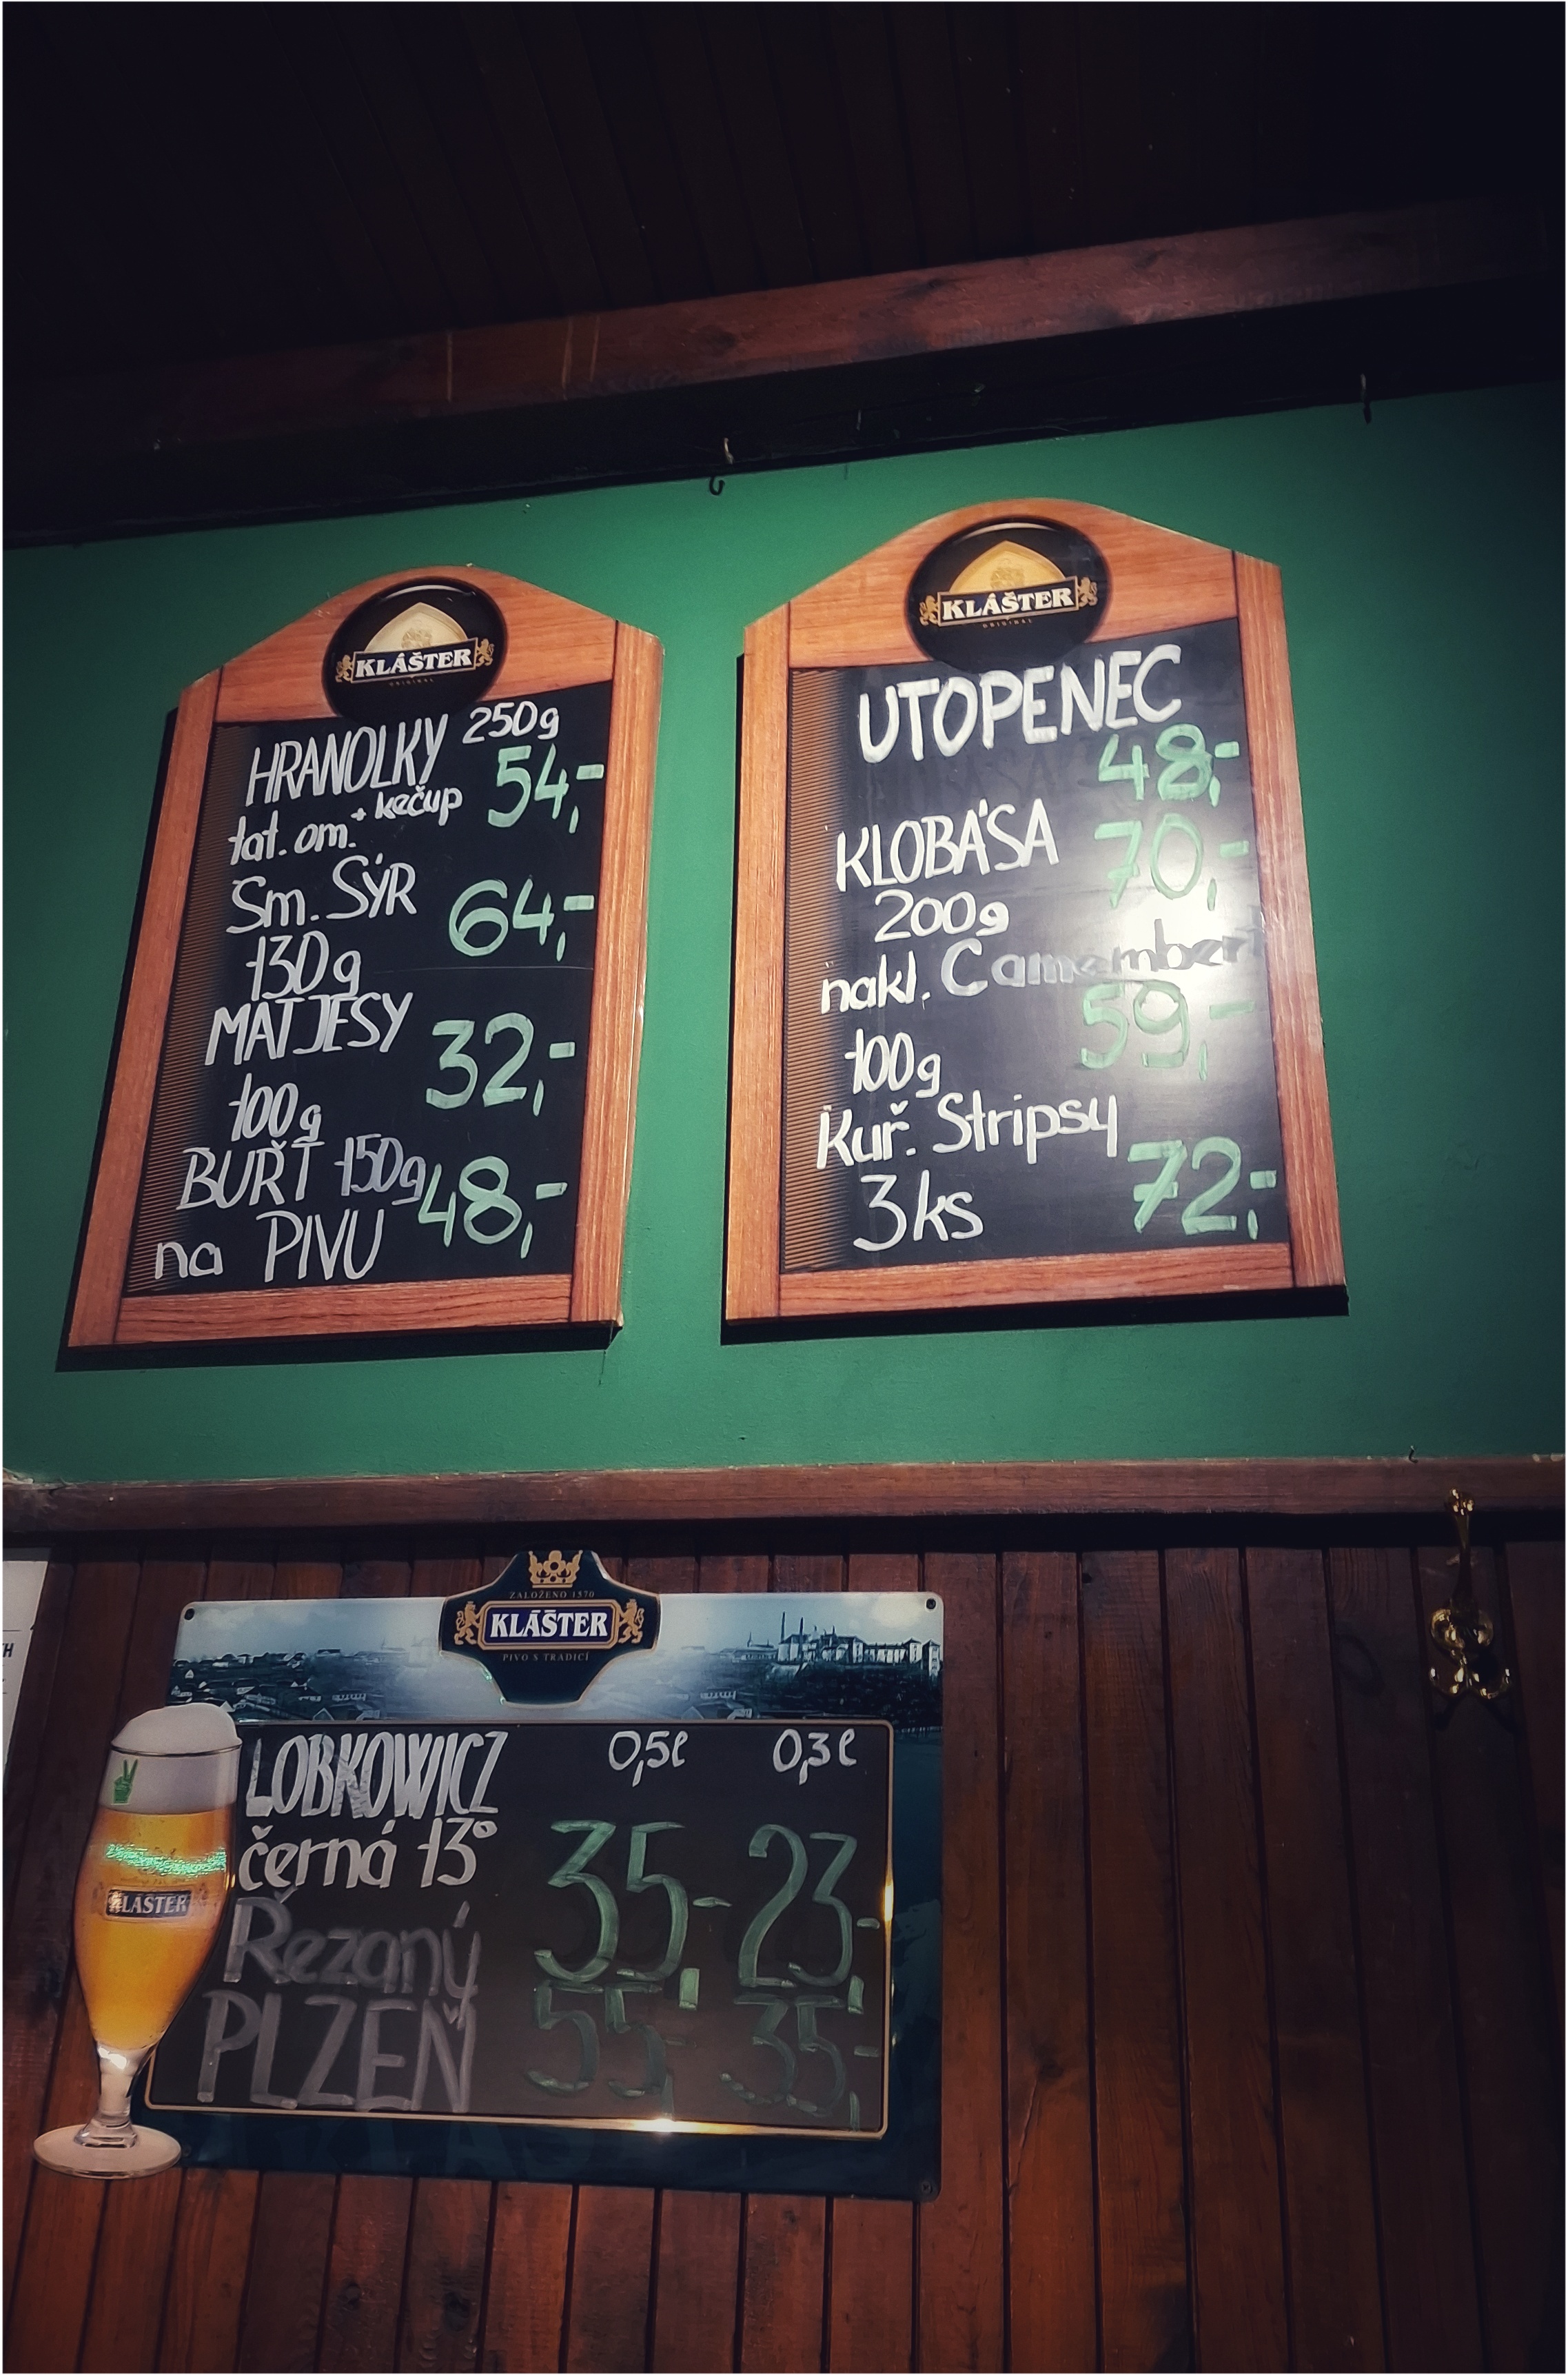 KLÁŠTER
ORIGINAL
HRANOLKY 250g
54,-
tat. om. + kečup
Sm. SÝR 64,-
130g
MATJESY 32,-
100g
BUŘT 150g 48,-
na PIVU
KLÁŠTER
ORIGINAL
UTOPENEC
48,-
KLOBÁSA 70,-
200g
nakl. Camembert
59,-
100g
Kuř. Stripsy
3ks 72,-
ZALOŽENO 1570
KLÁŠTER
PIVO S TRADICÍ
LOBKOWICZ 0,5l 0,3l
černá 13°
35,- 23,-
Řezaný
PLZEŇ 55,- 35,-
KLÁŠTER